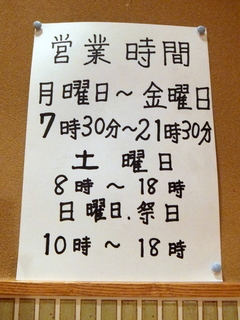 営業時間
月曜日～金曜日
7時30分～21時30分
土曜日
8時～18時
日曜日.祭日
10時～18時